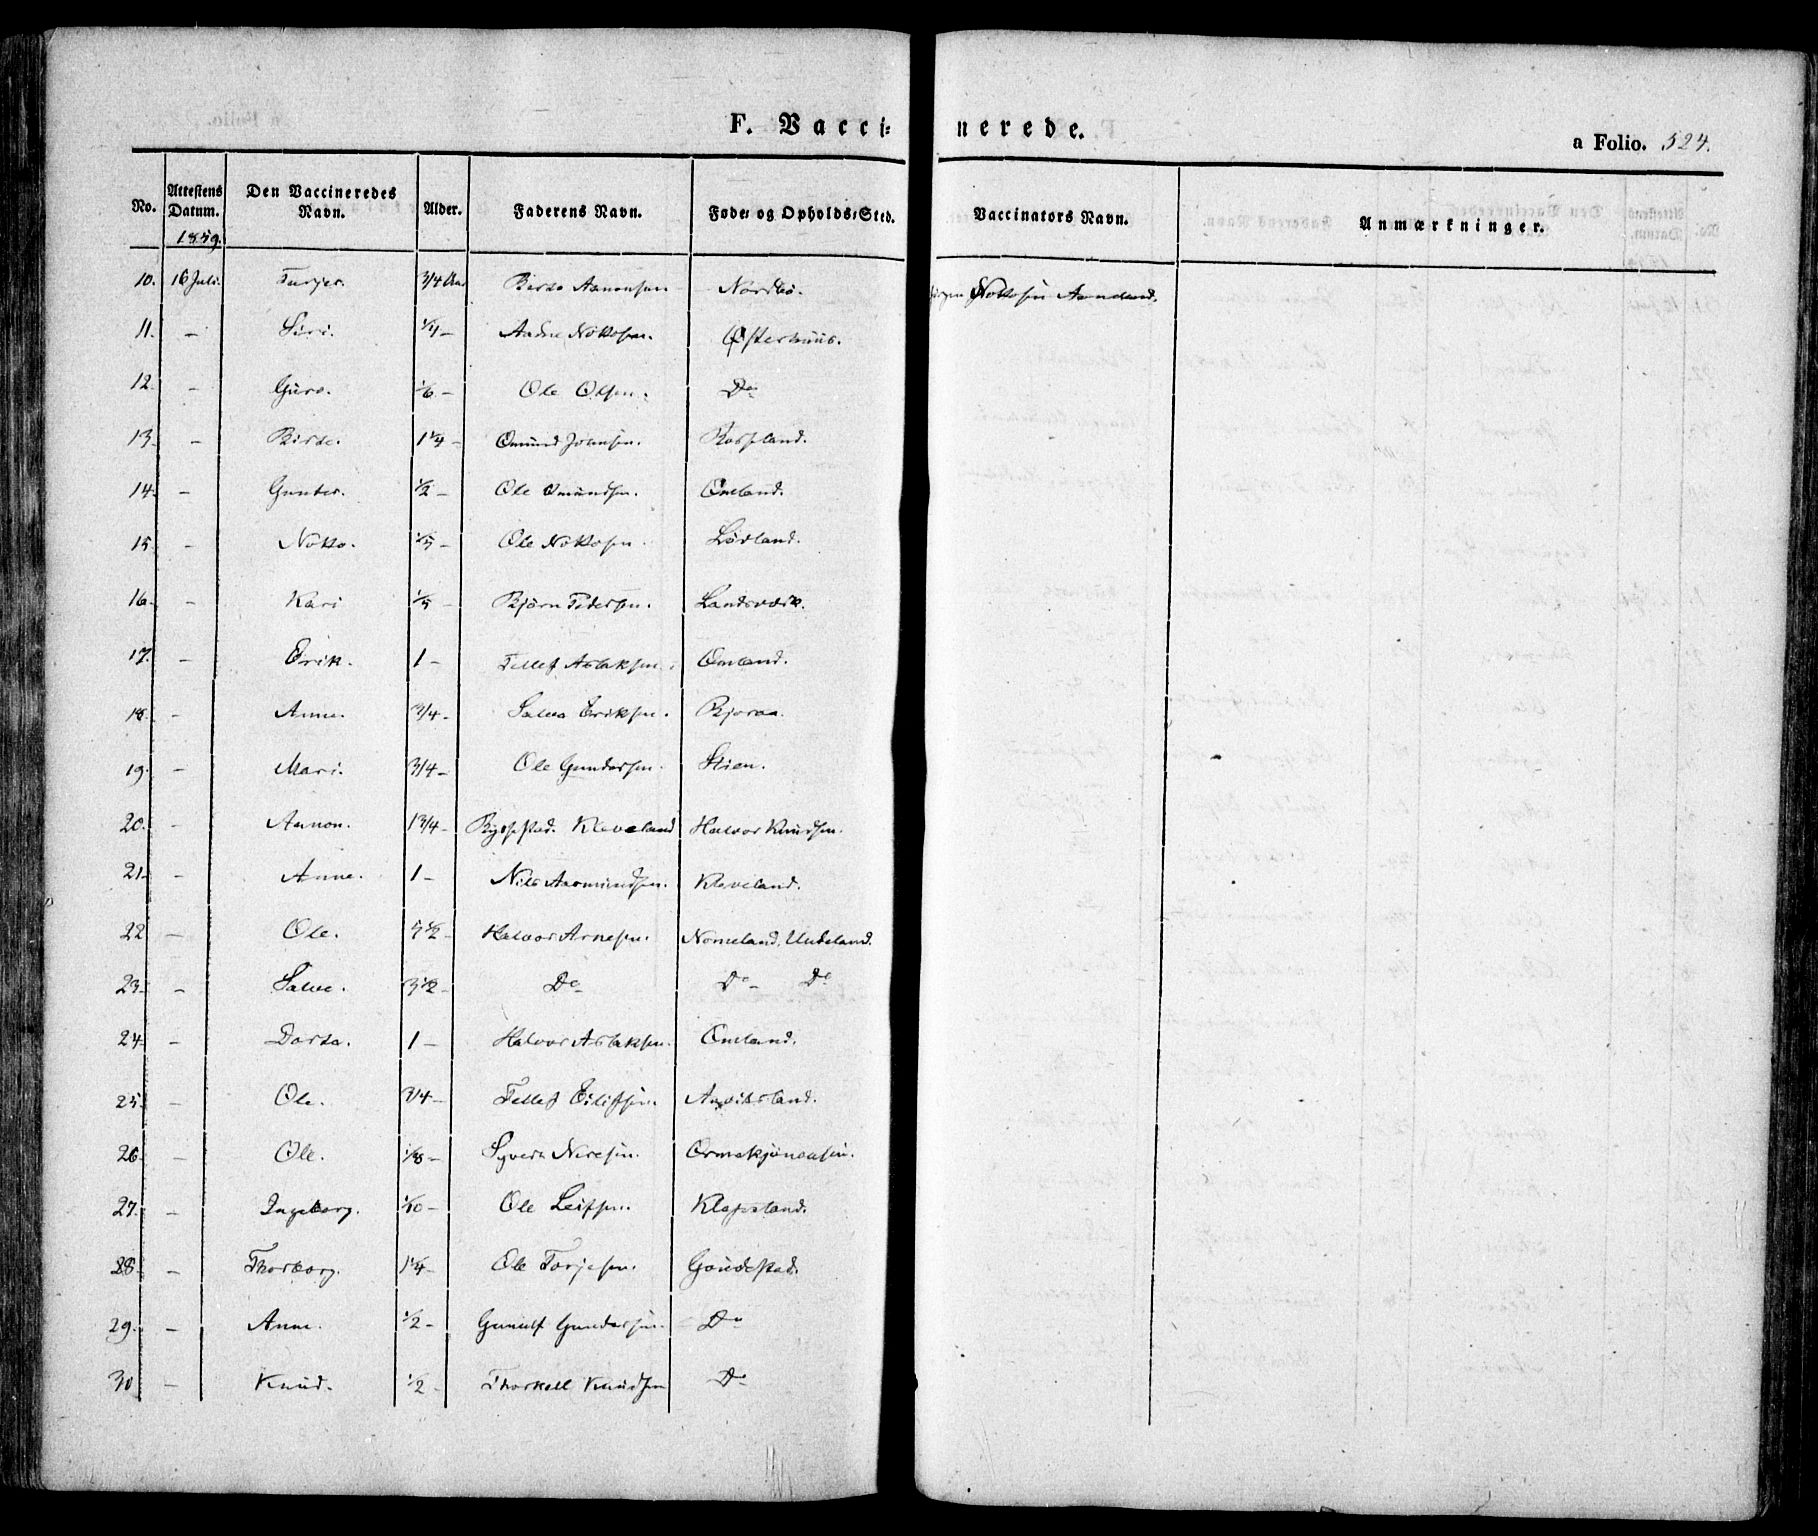 F. Vacci- nerede.
a Folio. 524.
No. Attestens Datum. Den Vaccineredes Navn. Alder. Faderens Navn. Føde- og Opholds-Sted. Vaccinators Navn. Anmærkninger.
1859.
10. 16 Juli. Tarjer. 3/4 Aar Birte Aanonsen Nordbø. Nottosen Aamland.
11. - Siri. 1/4 - Aadne Nottosen. Østerhuus.
12. - Guro. 1/6 - Ole Olsen. Do
13. - Birte. 1 1/4 - Omund Johnsen. Rosseland.
14. - Gunder. 1/2 - Ole Omundsen. Omland.
15. - Notto. 1/5 - Ole Nottosen. Lødland.
16. - Kari 1/5 - Bjørn Pedersen. Landsværk.
17. - Erik. 1 - Tellef Aslaksen. Omland.
18. - Anne. 3/4 - Salve Eriksen. Bjoraa.
19. - Mari. 3/4 - Ole Gundersen. Stien.
20. - Aanon. 1 3/4 - Bygsestad. Kleveland Halvor Knudsen.
21. - Anne. 1 - Nils Aasmundsen. Kleveland.
22 - Ole. 5 1/2 - Halvor Arnesen. Nomeland, Uudeland.
23. - Salve. 3 1/2 - Do Do - Do
24. - Dorte. 1 - Halvor Aslaksen. Omland.
25. - Ole. 3/4 - Tellef Eilifsen.
26. - Ole. 1/8 - Syvert Neresen.
27. - Ingeborg. 1/10 - Ole Leifsen. Klepsland.
28. - Thorborg. 1 1/4 - Ole Torjesen. Gaudestad.
29. - Anne. 1/2 - Gunulf Gundersen. Do
30 - Knud. 1/2 - Thorkell Knudsen Do